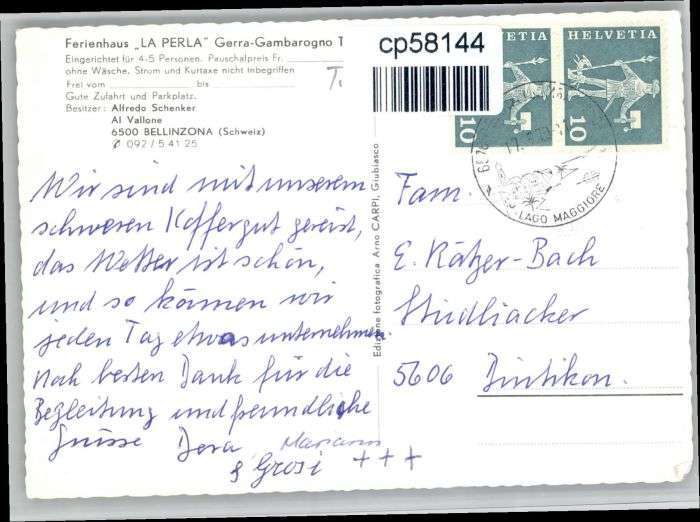 Ferienhaus „LA PERLA" Gerra-Gambarogno T
Eingerichtet für 4-5 Personen. Pauschalpreis Fr.
ohne Wäsche, Strom und Kurtaxe nicht inbegriffen
Frei vom bis
Gute Zufahrt und Parkplatz.
Besitzer: Alfredo Schenker
Al Vallone
6500 BELLINZONA (Schweiz)
✆ 092 / 5 41 25
Wir sind mit unserem
schweren Koffer gut gereist,
das Wetter ist schön,
und so können wir
jeden Tag etwas unternehmen.
Noch besten Dank für die
Begleitung und freundliche
Grüsse Dora Mariann
& Grosi +++
Edizione fotografica Arno CARPI, Giubiasco
cp58144
HELVETIA
10
10
LAGO MAGGIORE
Fam.
E. Rätzer-Bach
Stüdliacker
5606 Dintikon.